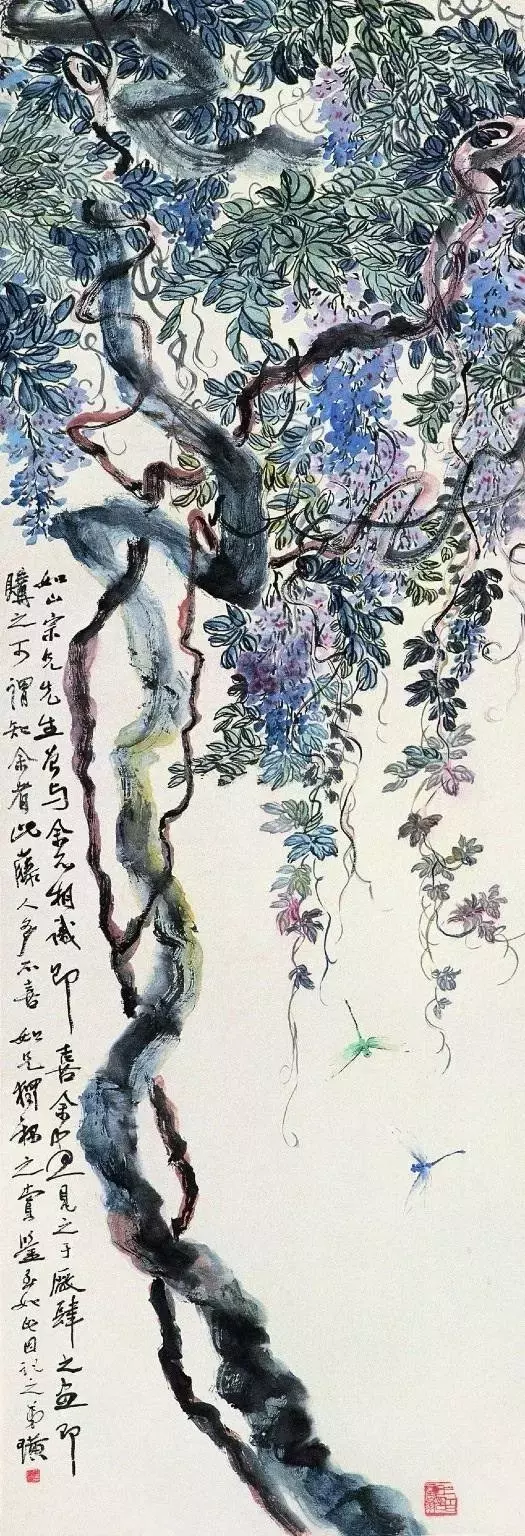 如山宗兄先生与余相識即喜余見之于厰肆之画即
購之可謂知余者此藤人多不喜如兄獨稱之賞鑒至如此因記之弟璜